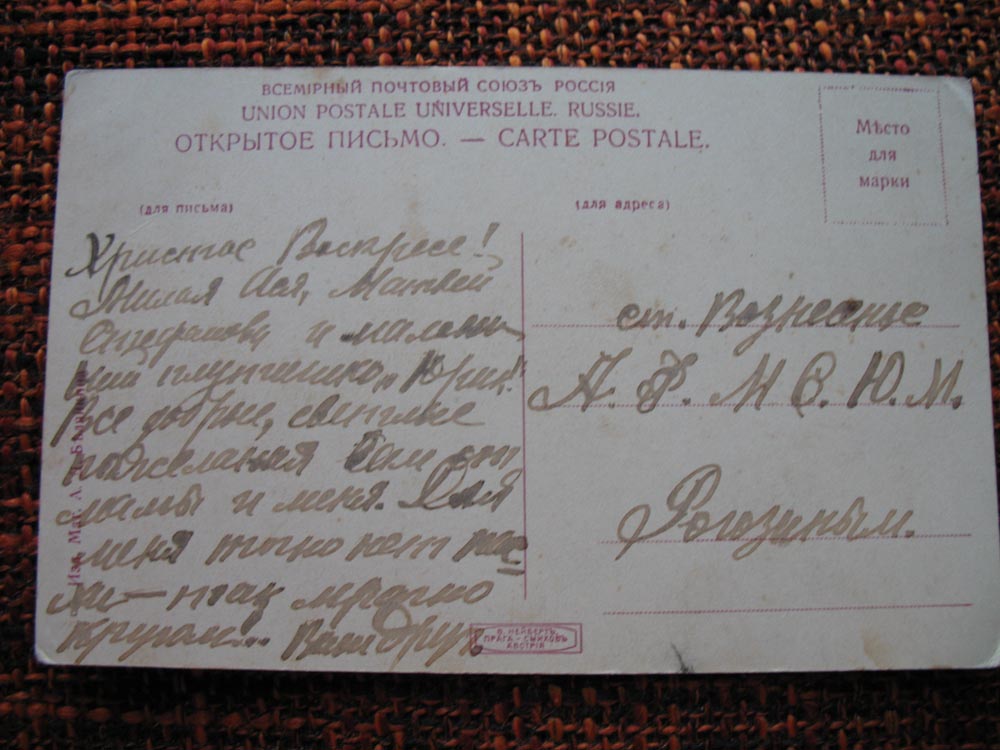 ВСЕМІРНЫЙ ПОЧТОВЫЙ СОЮЗЪ РОССІЯ
UNION POSTALE UNIVERSELLE. RUSSIE.
ОТКРЫТОЕ ПИСЬМО. — CARTE POSTALE.
Мѣсто
для
марки
(для письма)
(для адреса)
Христос Воскресе!
Милая Ася, Матвей
и малень
кий глупчишко, Юрик!
Все добрые, светлые
пожелания Вам от
мамы и меня. Для
меня точно нет пас
хи — так мрачно
кругом... Ваш друг
ст. Вознесенце
А. Ф. М С. Ю. М.
Рогозиным.
Изд. Маг. А.
В. НЕЙБЕРТЪ,
ПРАГА - СМИХОВЪ
АВСТРІЯ